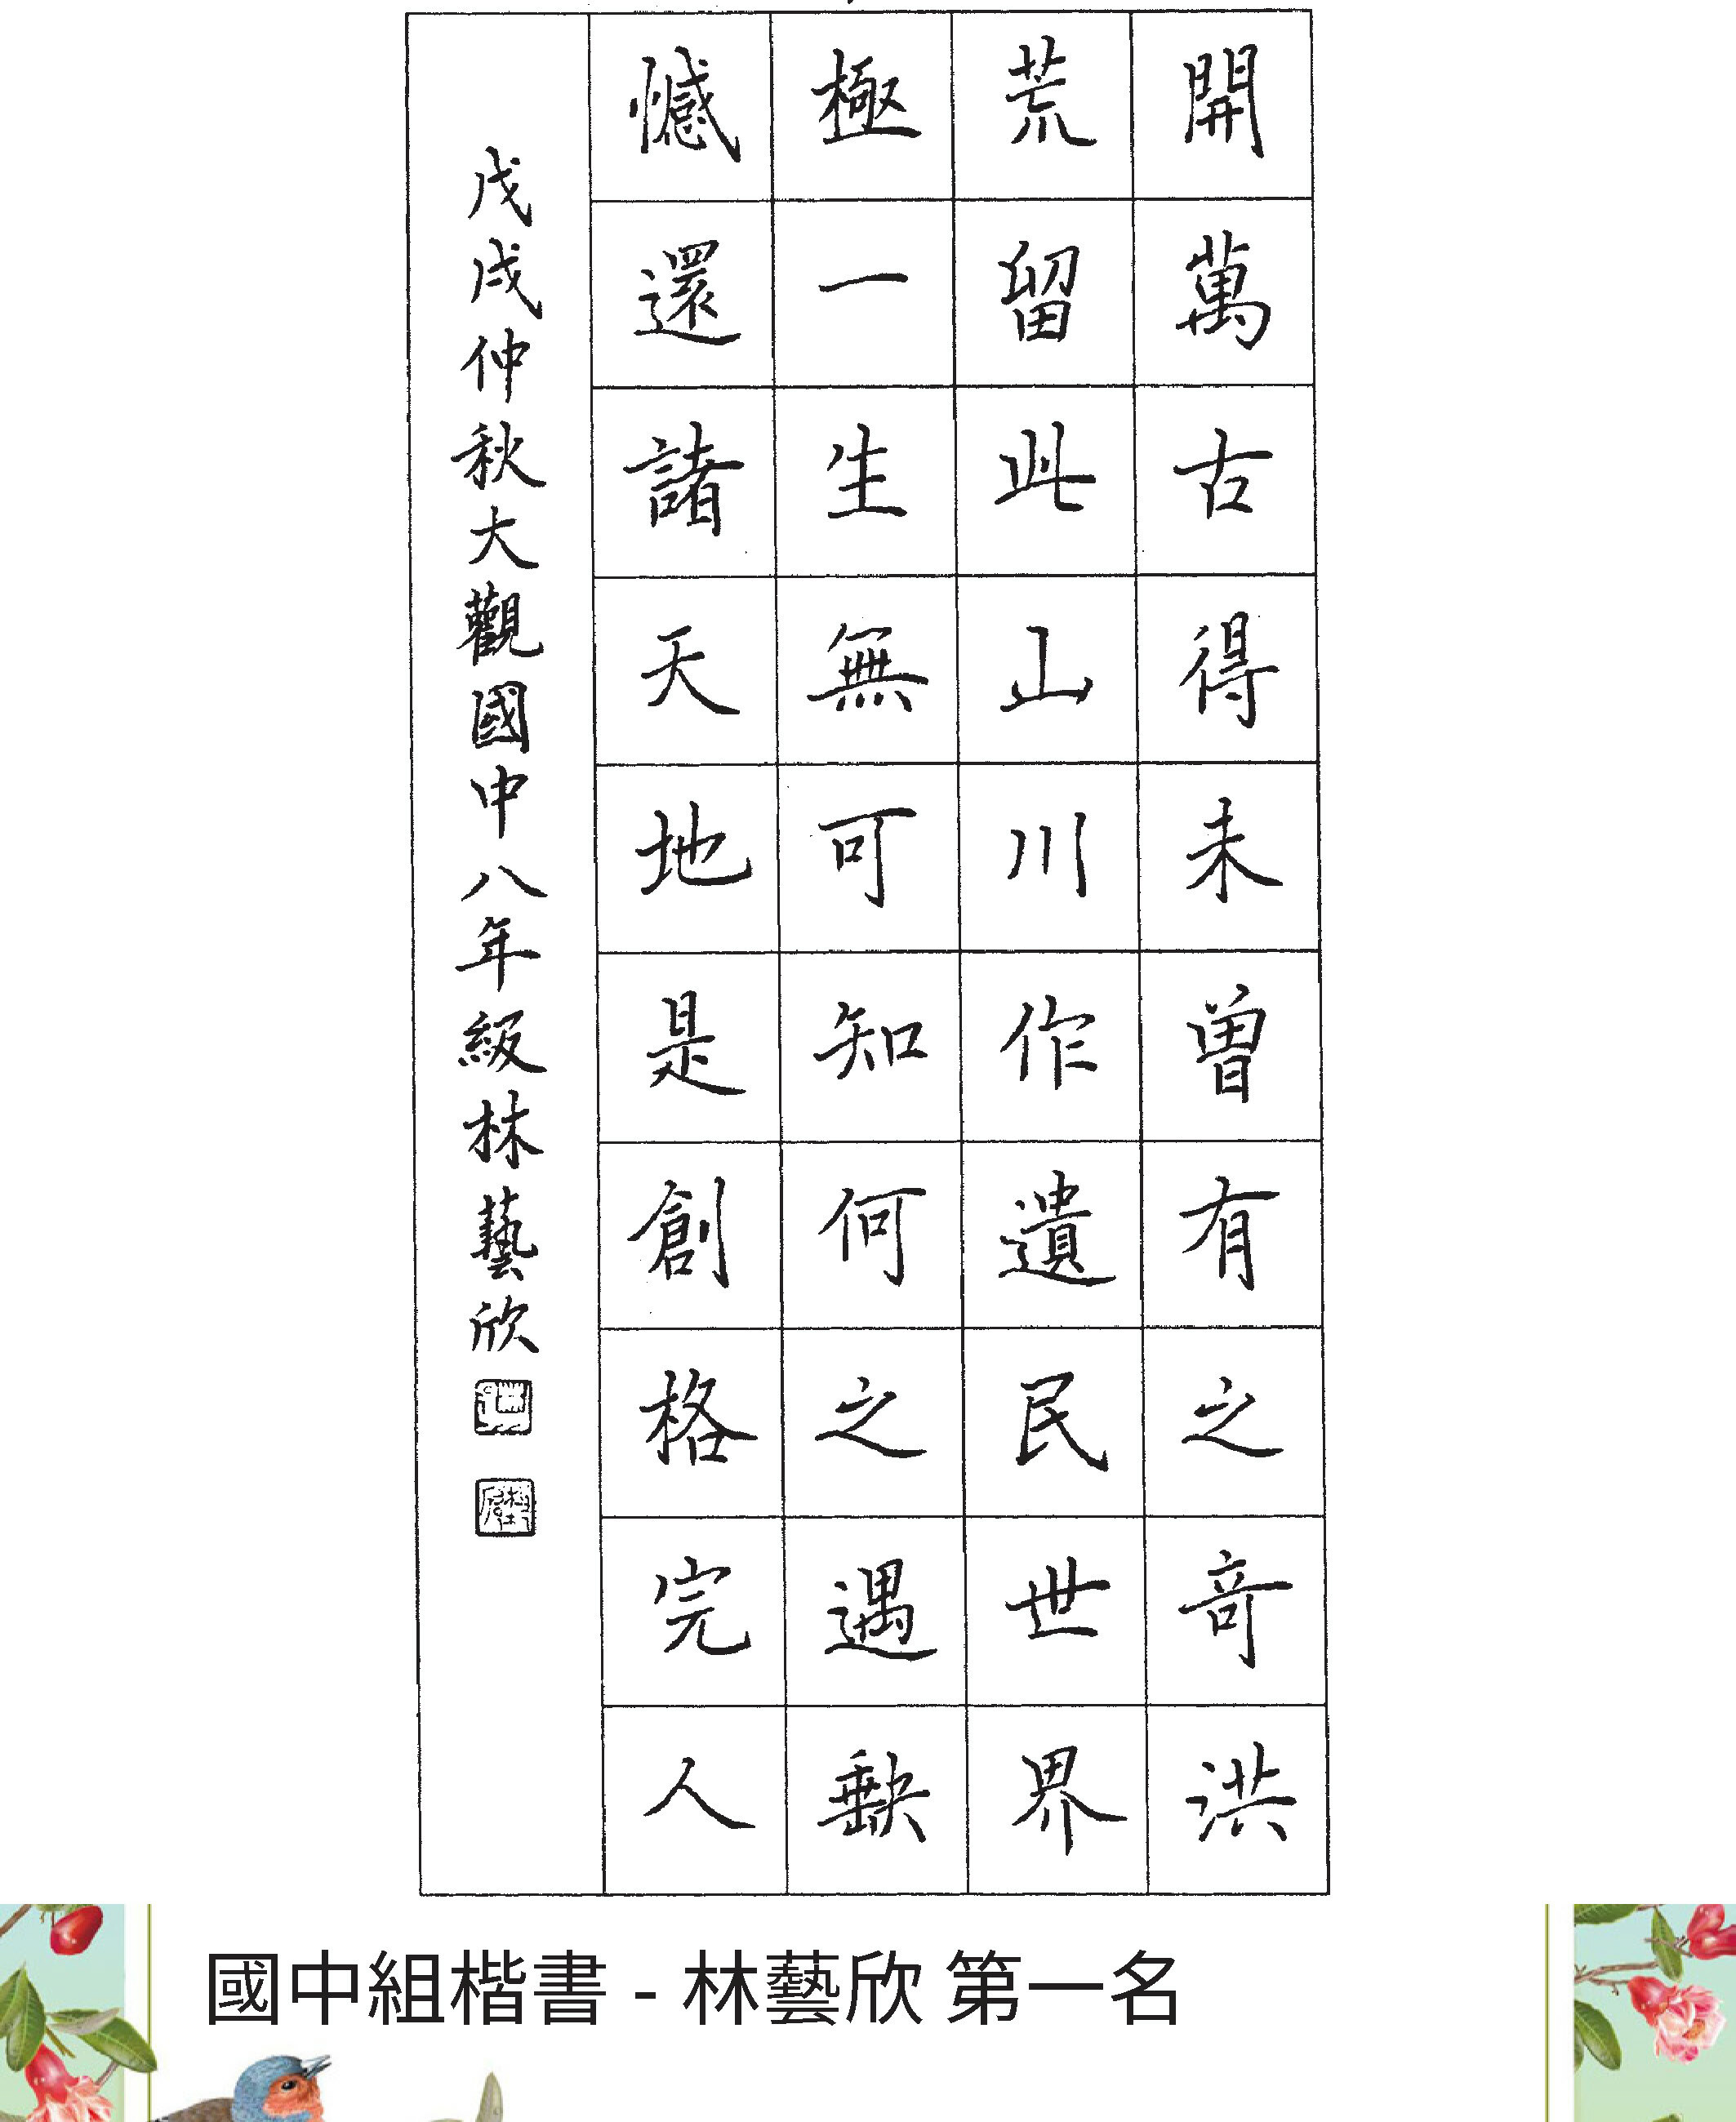 開萬古得未曾有之奇洪
荒留此山川作遺民世界
極一生無可知何之遇缺
憾還諸天地是創格完人
戊戌仲秋大觀國中八年級林藝欣
國中組楷書 - 林藝欣 第一名